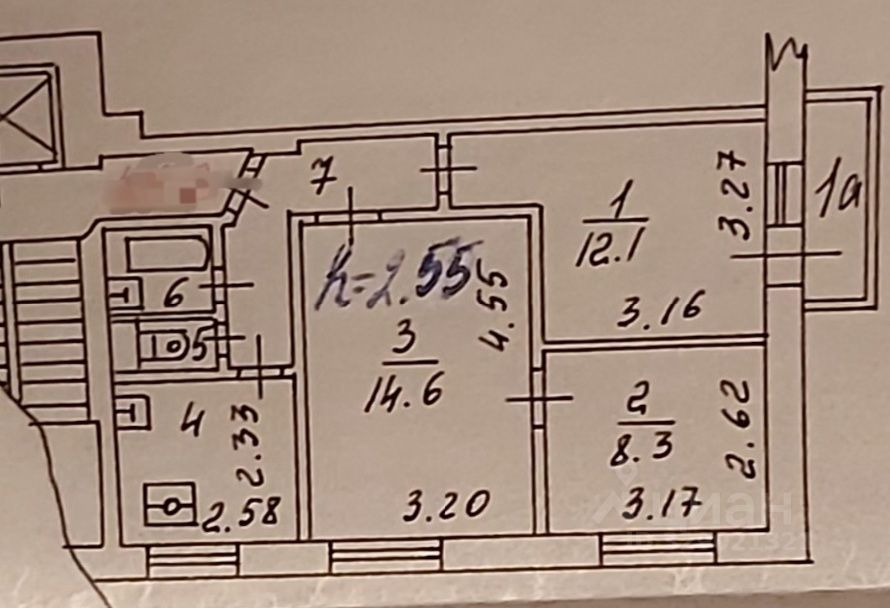 7
1
12.1
3.27
1a
3.16
h=2.55
6
5
3
14.6
4.55
4
2.33
2.58
3.20
2
8.3
2.62
3.17
циан